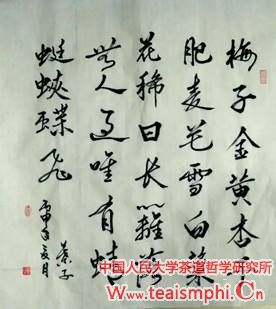 梅子金黄杏子
肥麦花雪白菜
花稀日长籬落
無人过唯有蜻
蜓蛺蝶飞
中国人民大学茶道哲学研究所
http://www.teaismphi.Cn